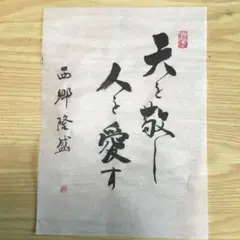 天を敬し
人を愛す
西郷隆盛